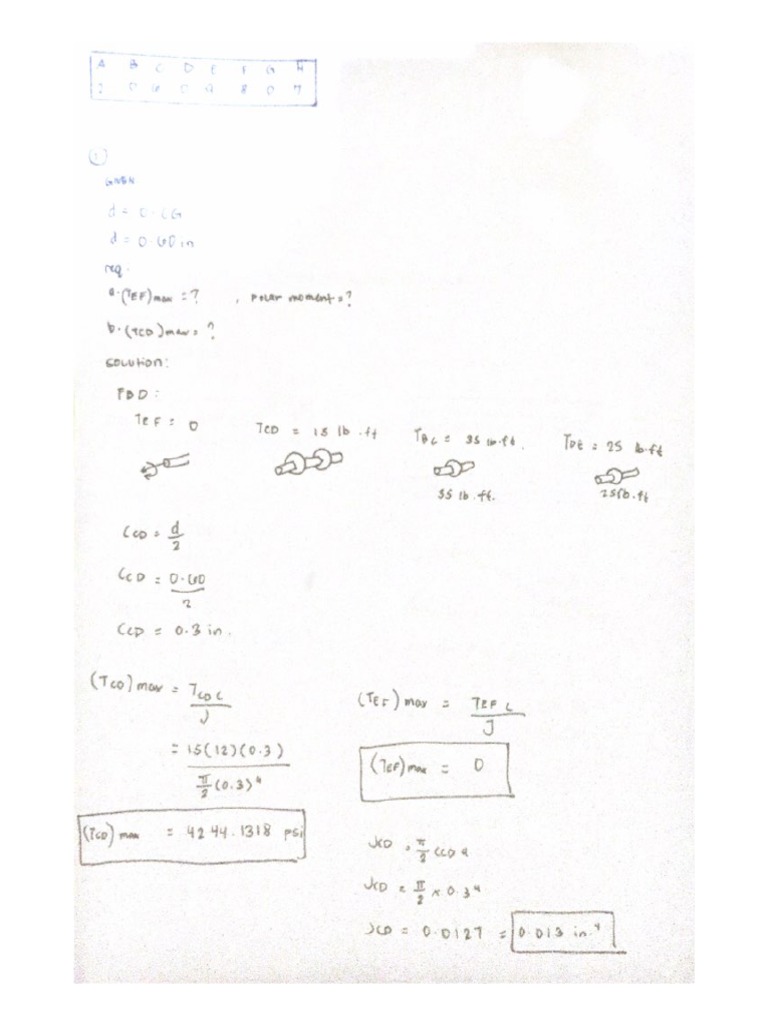 A B C D E F G H
2 0 6 0 9 8 0 7
①
GIVEN
d = 0.CG
d = 0.60 in
req.
a. (TEF) max = ? , polar moment = ?
b. (TCD) max = ?
solution:
FBD:
TEF = 0 TCD = 15 lb.ft TBC = 35 lb.ft. TDE = 25 lb.ft
35 lb.ft. 25 lb.ft
CCD = d/2
CCD = 0.60/2
CCD = 0.3 in.
(TCD) max = TCD C/J (TEF) max = TEF C/J
= 15(12)(0.3)/π/2 (0.3)⁴ (TEF) max = 0
(TCD) max = 4244.1318 psi
JCD = π/2 CCD 4
JCD = π/2 x 0.3⁴
JCD = 0.0127 = 0.013 in.⁴